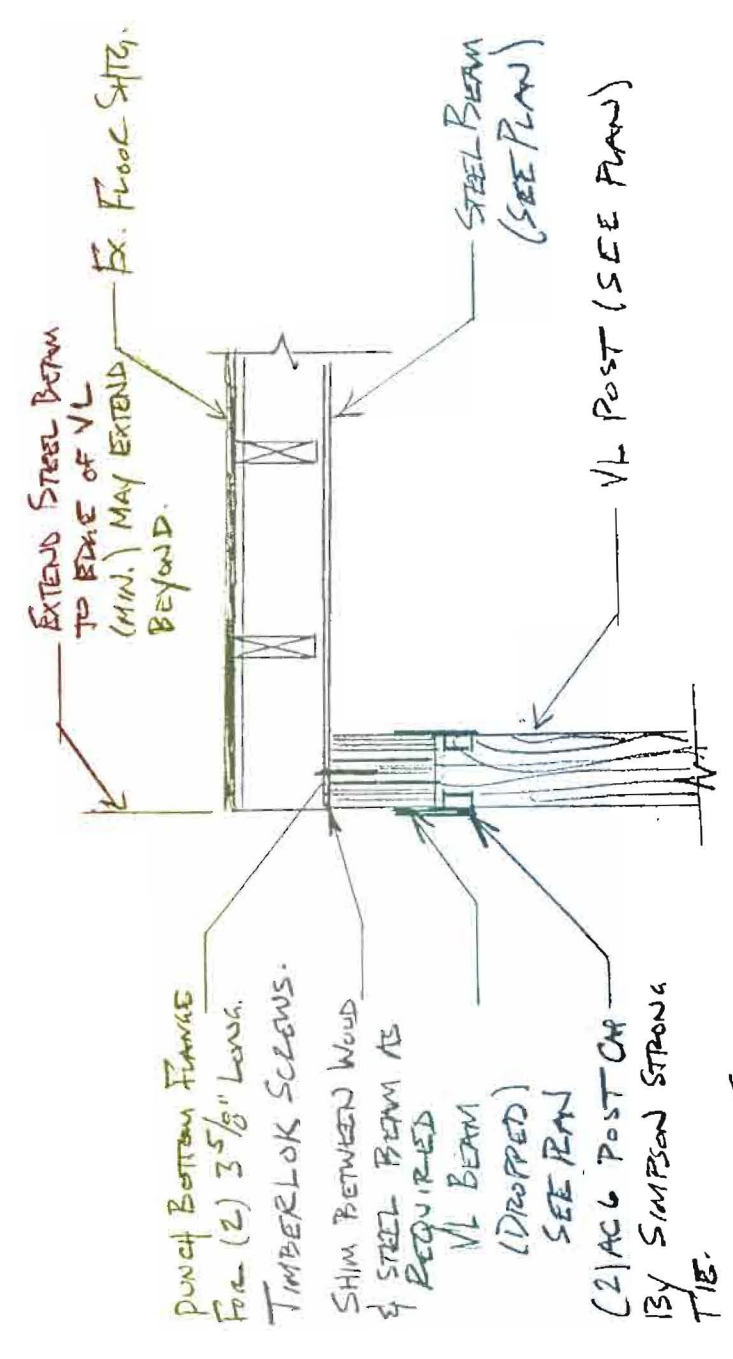 EXTEND STEEL BEAM
TO EDGE OF VL
(MIN.) MAY EXTEND
BEYOND.
EX. FLOOR SHTG.
STEEL BEAM
(SEE PLAN)
VL POST (SEE PLAN)
PUNCH BOTTOM FLANGE
FOR (2) 3 5/8" LONG.
TIMBERLOK SCREWS.
SHIM BETWEEN WOOD
& STEEL BEAM AS
REQUIRED
VL BEAM
(DROPPED)
SEE PLAN
(2) AC6 POST CAP
BY SIMPSON STRONG
TIE.